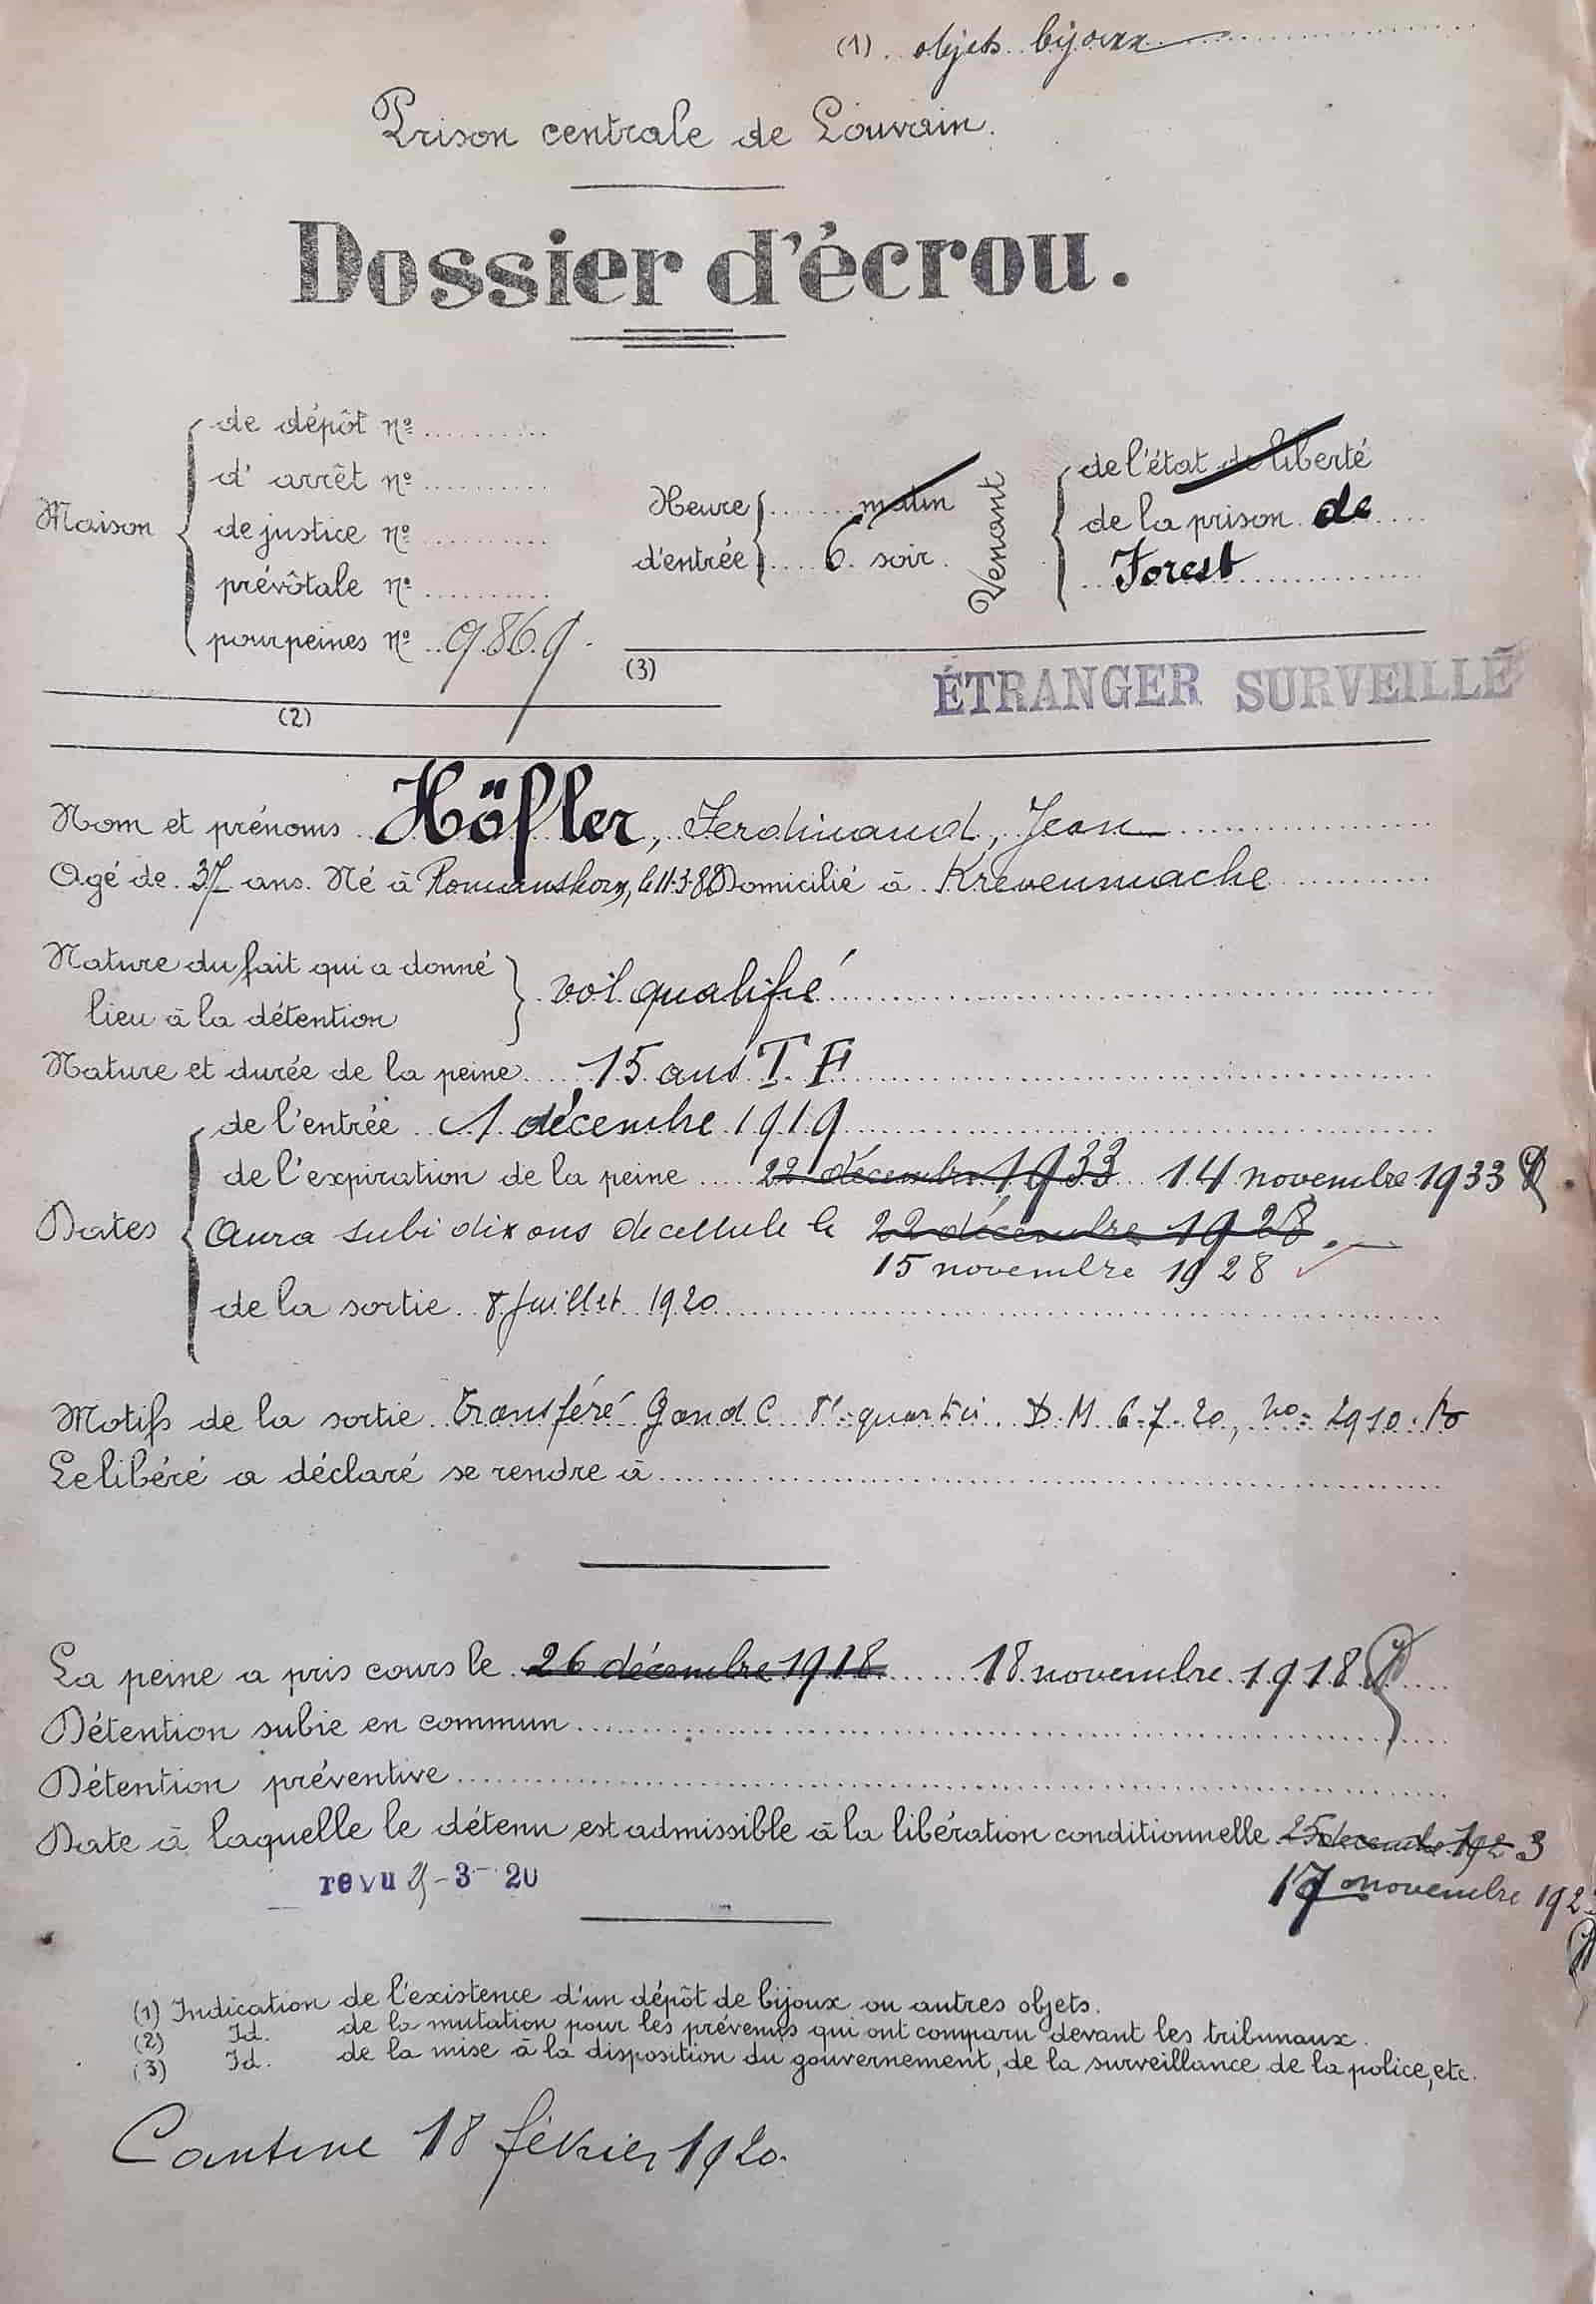 (1) objets bijoux
Prison centrale de Louvain.
Dossier d'écrou.
Maison
de dépôt nº
d'arrêt nº
de justice nº
prévôtale nº
pour peines nº 9869
Heure d'entrée
matin
6 soir
Venant
de l'état de liberté
de la prison de
Forest
(3)
ÉTRANGER SURVEILLÉ
(2)
Nom et prénoms Höfler, Ferdinand, Jean
Agé de 37 ans. Né à Romanshorn, le 11-3-82 Domicilié à Krevenmache
Nature du fait qui a donné
lieu à la détention
vol qualifié
Nature et durée de la peine 15 ans T F
Dates
de l'entrée 1 décembre 1919
de l'expiration de la peine 22 décembre 1933 14 novembre 1933
Aura subi dix ans de cellule le 22 décembre 1928.
15 novembre 1928
de la sortie 8 Juillet 1920
Motifs de la sortie transféré Gand C quartier D.M 6-7-20, nº 2910
Le libéré a déclaré se rendre à
La peine a pris cours le 26 décembre 1918 18 novembre 1918
Détention subie en commun
Détention préventive
Date à laquelle le détenu est admissible à la libération conditionnelle 25 decembre 1923
17 novembre 192
revu -3-20
(1) Indication de l'existence d'un dépôt de bijoux ou autres objets.
(2) Id. de la mutation pour les prévenus qui ont comparu devant les tribunaux.
(3) Id. de la mise à la disposition du gouvernement, de la surveillance de la police, etc.
Cantine 18 février 1920.